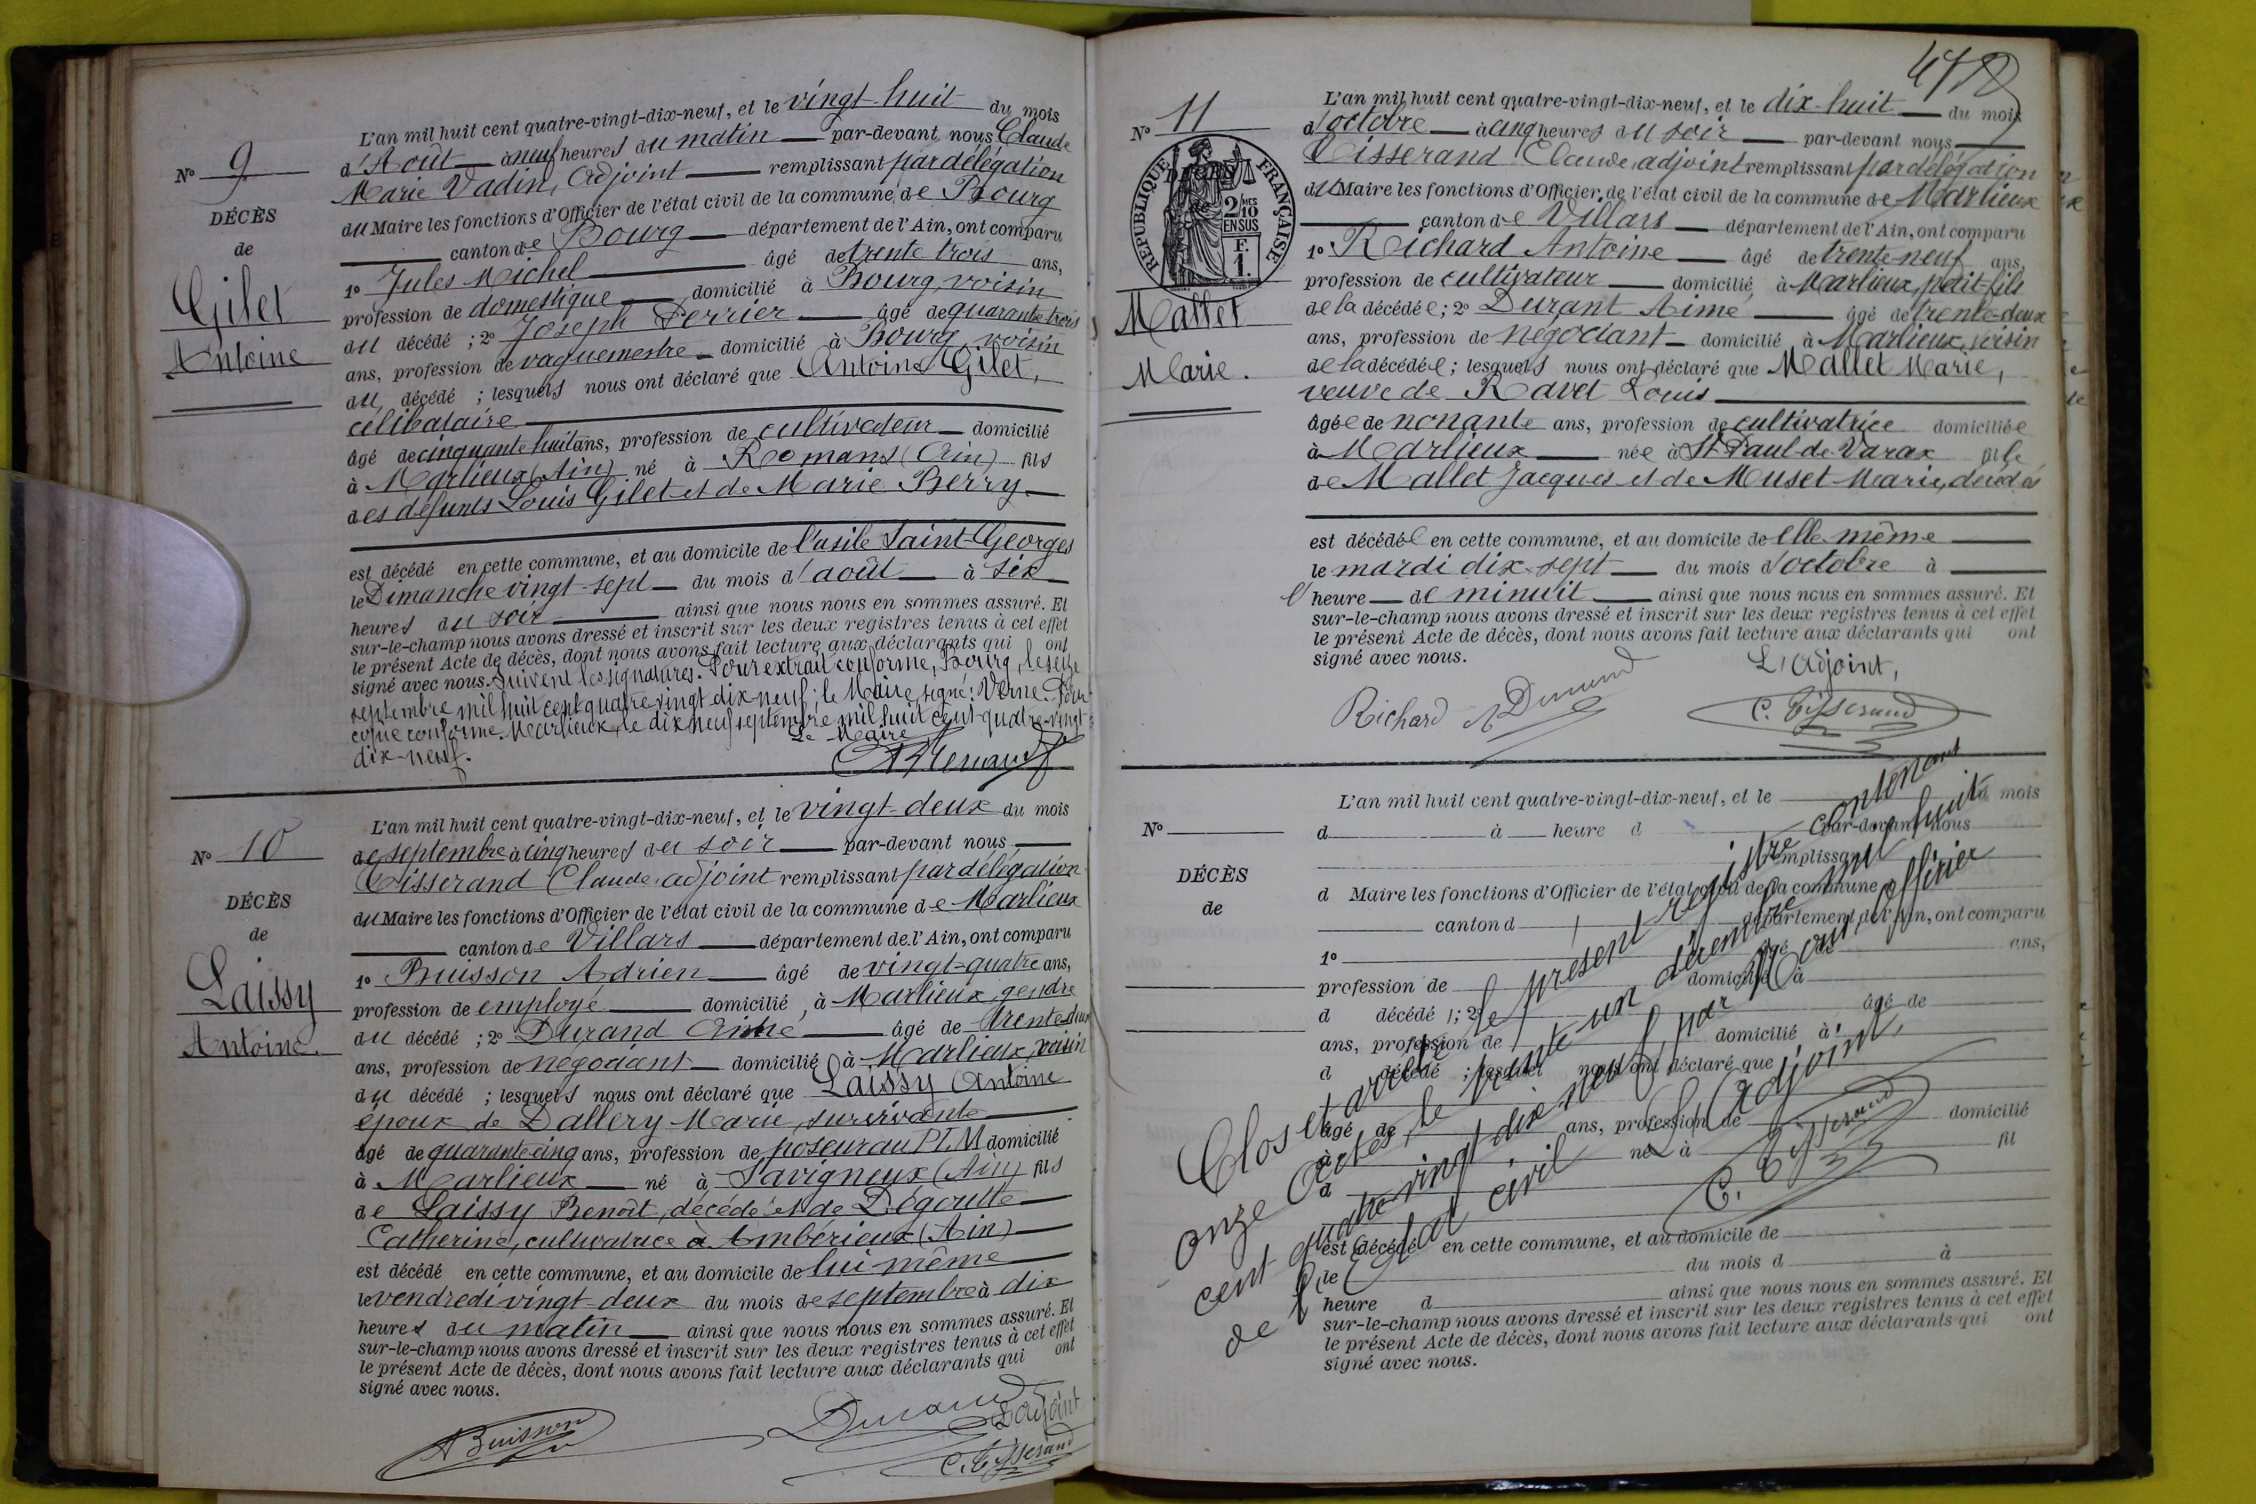 N° 9
DÉCÈS
de
Gilet
Antoine
L'an mil huit cent quatre-vingt-dix-neuf, et le vingt-huit du mois
d'Août à neuf heures du matin par-devant nous Claude
Marie Vadin, Adjoint remplissant par délégation
du Maire les fonctions d'Officier de l'état civil de la commune de Bourg
canton de Bourg département de l'Ain, ont comparu
1° Jules Michel âgé de trente trois ans,
profession de domestique domicilié à Bourg, voisin
du décédé ; 2° Joseph Perrier âgé de quarante trois
ans, profession de vaguemestre domicilié à Bourg, voisin
du décédé ; lesquels nous ont déclaré que Antoine Gilet,
célibataire
âgé de cinquante huit ans, profession de cultivateur domicilié
à Marlieux (Ain) né à Romans (Ain) fils
des défunts Louis Gilet et de Marie Berry
est décédé en cette commune, et au domicile de l'asile Saint-Georges
le Dimanche vingt-sept du mois d'août à six
heures du soir ainsi que nous nous en sommes assuré. Et
sur-le-champ nous avons dressé et inscrit sur les deux registres tenus à cet effet
le présent Acte de décès, dont nous avons fait lecture aux déclarants qui ont
signé avec nous. Suivent les signatures. Pour extrait conforme, Bourg, le seize
septembre mil huit cent quatre vingt dix neuf. le Maire, signé: Verne. Pour
copie conforme. Marlieux, le dix neuf septembre mil huit cent quatre-vingt
dix-neuf. Le Maire
N° 10
DÉCÈS
de
Laissy
Antoine.
L'an mil huit cent quatre-vingt-dix-neuf, et le vingt-deux du mois
de septembre à cinq heures du soir par-devant nous
Tisserand Claude, adjoint remplissant par délégation
du Maire les fonctions d'Officier de l'état civil de la commune de Marlieux
canton de Villars département de l'Ain, ont comparu
1° Buisson Adrien âgé de vingt-quatre ans,
profession de employé domicilié à Marlieux, gendre
du décédé ; 2° Durand Aimé âgé de trente deux
ans, profession de négociant domicilié à Marlieux, voisin
du décédé ; lesquels nous ont déclaré que Laissy Antoine
époux de Dallery Marie, survivante
âgé de quarante cinq ans, profession de poseur au PLM domicilié
à Marlieux né à Savigneux (Ain) fils
de Laissy Benoît, décédé et de Dégoutte
Catherine, cultivatrice à Ambérieux (Ain)
est décédé en cette commune, et au domicile de lui même
le vendredi vingt-deux du mois de septembre à dix
heures du matin ainsi que nous nous en sommes assuré. Et
sur-le-champ nous avons dressé et inscrit sur les deux registres tenus à cet effet
le présent Acte de décès, dont nous avons fait lecture aux déclarants qui ont
signé avec nous.
A Buisson Durand L'adjoint
C. Tisserand
N° 11
RÉPUBLIQUE FRANÇAISE
2/10 MES
EN SUS
F.
1.
Mallet
Marie.
L'an mil huit cent quatre-vingt-dix-neuf, et le dix-huit du mois
d'octobre à cinq heures du soir par-devant nous
Tisserand Claude, adjoint remplissant par délégation
du Maire les fonctions d'Officier de l'état civil de la commune de Marlieux
canton de Villars département de l'Ain, ont comparu
1° Richard Antoine âgé de trente-neuf ans,
profession de cultivateur domicilié à Marlieux, petit-fils
de la décédée ; 2° Durant Aimé âgé de trente-deux
ans, profession de négociant domicilié à Marlieux, voisin
de la décédée ; lesquels nous ont déclaré que Mallet Marie,
veuve de Ravet Louis
âgée de nonante ans, profession de cultivatrice domiciliée
à Marlieux née à St Paul-de-Varax fille
de Mallet Jacques et de Muset Marie, décédés
est décédée en cette commune, et au domicile de elle même
le mardi dix-sept du mois d'octobre à
l'heure de minuit ainsi que nous nous en sommes assuré. Et
sur-le-champ nous avons dressé et inscrit sur les deux registres tenus à cet effet
le présent Acte de décès, dont nous avons fait lecture aux déclarants qui ont
signé avec nous.
L'Adjoint,
Richard A Durand C. Tisserand
N°
DÉCÈS
de
L'an mil huit cent quatre-vingt-dix-neuf, et le du mois
d à heure d par-devant nous
remplissant
d Maire les fonctions d'Officier de l'état civil de la commune
canton d département de l'Ain, ont comparu
1° âgé ans,
profession de domicilié à
d décédé ; 2° âgé de
ans, profession de domicilié à
d décédé ; lesquel nous ont déclaré que
âgé de ans, profession de domicilié
à né à fil
d
est décédé en cette commune, et au domicile de
le du mois d à
heure d ainsi que nous nous en sommes assuré. Et
sur-le-champ nous avons dressé et inscrit sur les deux registres tenus à cet effet
le présent Acte de décès, dont nous avons fait lecture aux déclarants qui ont
signé avec nous.
Clos et arrêté le présent registre contenant
onze actes, le trente un décembre mil huit
cent quatre vingt dix neuf, par Nous, officier
de l'Etat civil
L'Adjoint,
C. Tisserand